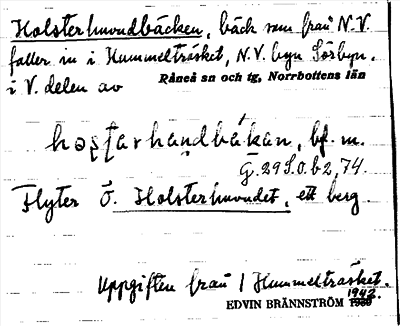 Holsterhuvudbäcken, bäck som från N.V.
faller in i Hummelträsket, N.V. byn Sörbyn.
i V. delen av Råneå sn och tg, Norrbottens län
bf. m.
G. 29 S.o.b 2, 74.
Flyter Ö. Holsterhuvudet, ett berg.
Uppgiften från 1 Hummelträsket.
1942.
EDVIN BRÄNNSTRÖM 1939